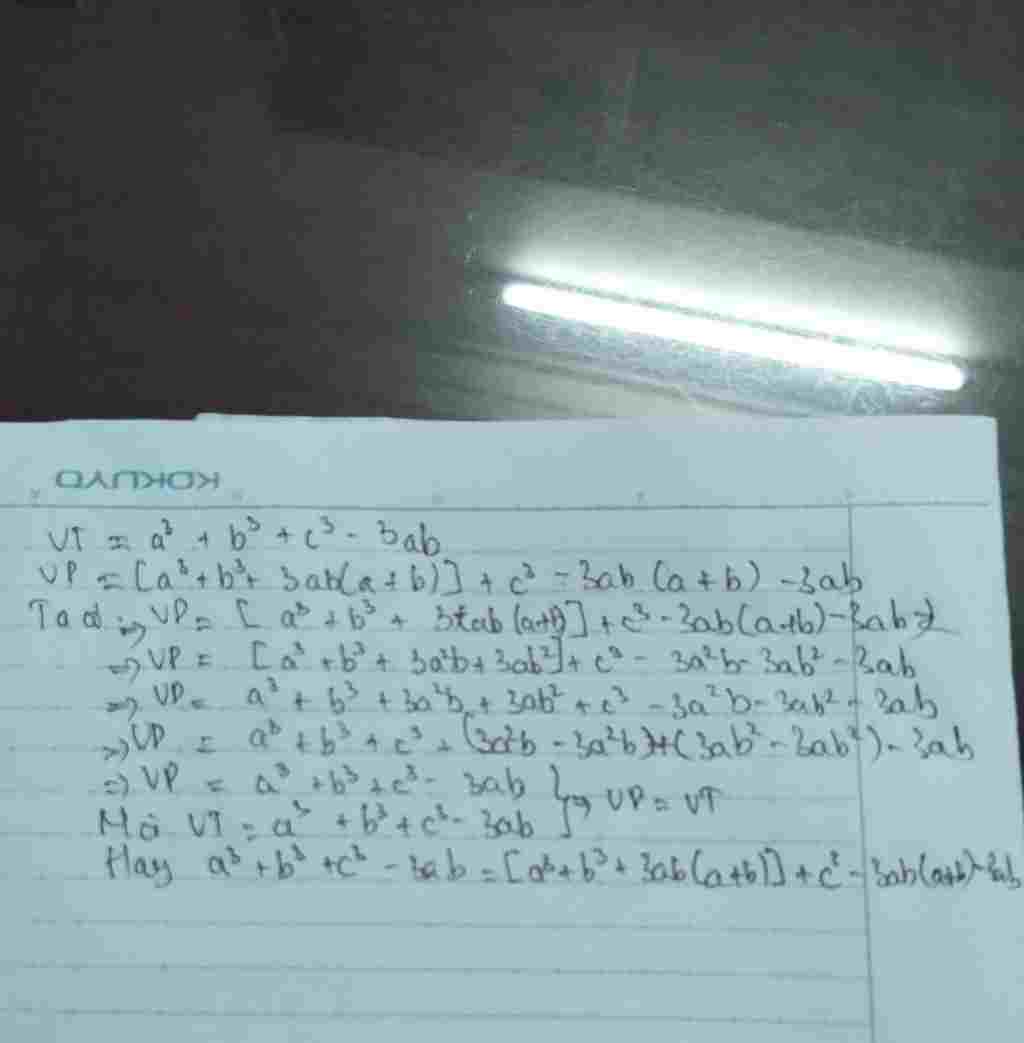 KOKUYO
VT = a³ + b³ + c³ - 3ab
VP = [a³ + b³ + 3ab(a + b)] + c³ - 3ab (a + b) - 3ab
Ta có => VP = [ a³ + b³ + 3ab (a+b)] + c³ - 3ab(a+b) - 3ab
=> VP = [a³ + b³ + 3a²b + 3ab²] + c³ - 3a²b - 3ab² - 3ab
=> VP = a³ + b³ + 3a²b + 3ab² + c³ - 3a²b - 3ab² - 3ab
=> VP = a³ + b³ + c³ + (3a²b - 3a²b) + (3ab² - 3ab²) - 3ab
=> VP = a³ + b³ + c³ - 3ab } => VP = VT
Mà VT = a³ + b³ + c³ - 3ab
Hay a³ + b³ + c³ - 3ab = [a³ + b³ + 3ab(a+b)] + c³ - 3ab(a+b) - 3ab